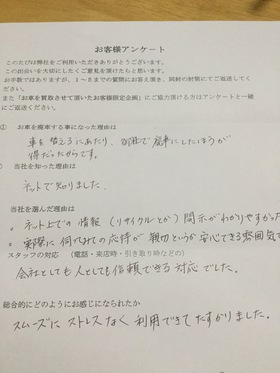 お客様アンケート
このたびは弊社をご利用いただきありがとうございます。
この出会いを大切にしたくご意見を頂けたらと思います。
お手数ではありますが、1～5までの質問にお答え頂き、同封の封筒にてご返送してく
ださい。
また「お車を買取させて頂いたお客様限定企画」にご協力頂ける方はアンケートと一緒
にご返送ください。
① お車を廃車する事になった理由は
車を替えるにあたり、別で廃車にしたほうが
得だったからです。
当社を知った理由は
ネットで知りました。
当社を選んだ理由は
・ネット上での情報(リサイクルとか)開示がわかりやすかった
・実際に伺てみての応待が親切というか安心できる雰囲気で
スタッフの対応 (電話・来店時・引き取り時などの)
会社としても人としても信頼できる対応でした。
総合的にどのようにお感じになられたか
スムーズにストレスなく利用できてたすかりました。